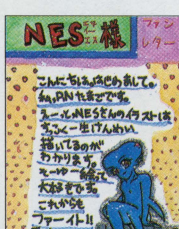 NES様
ファン
レター
こんにちは。はじめまして。
私、PNたまごです。
えーっとNESさんのイラストは
すっごく一生けんめい
描いてるのが
わかります。
大好きです。
これからも
ファイト!!